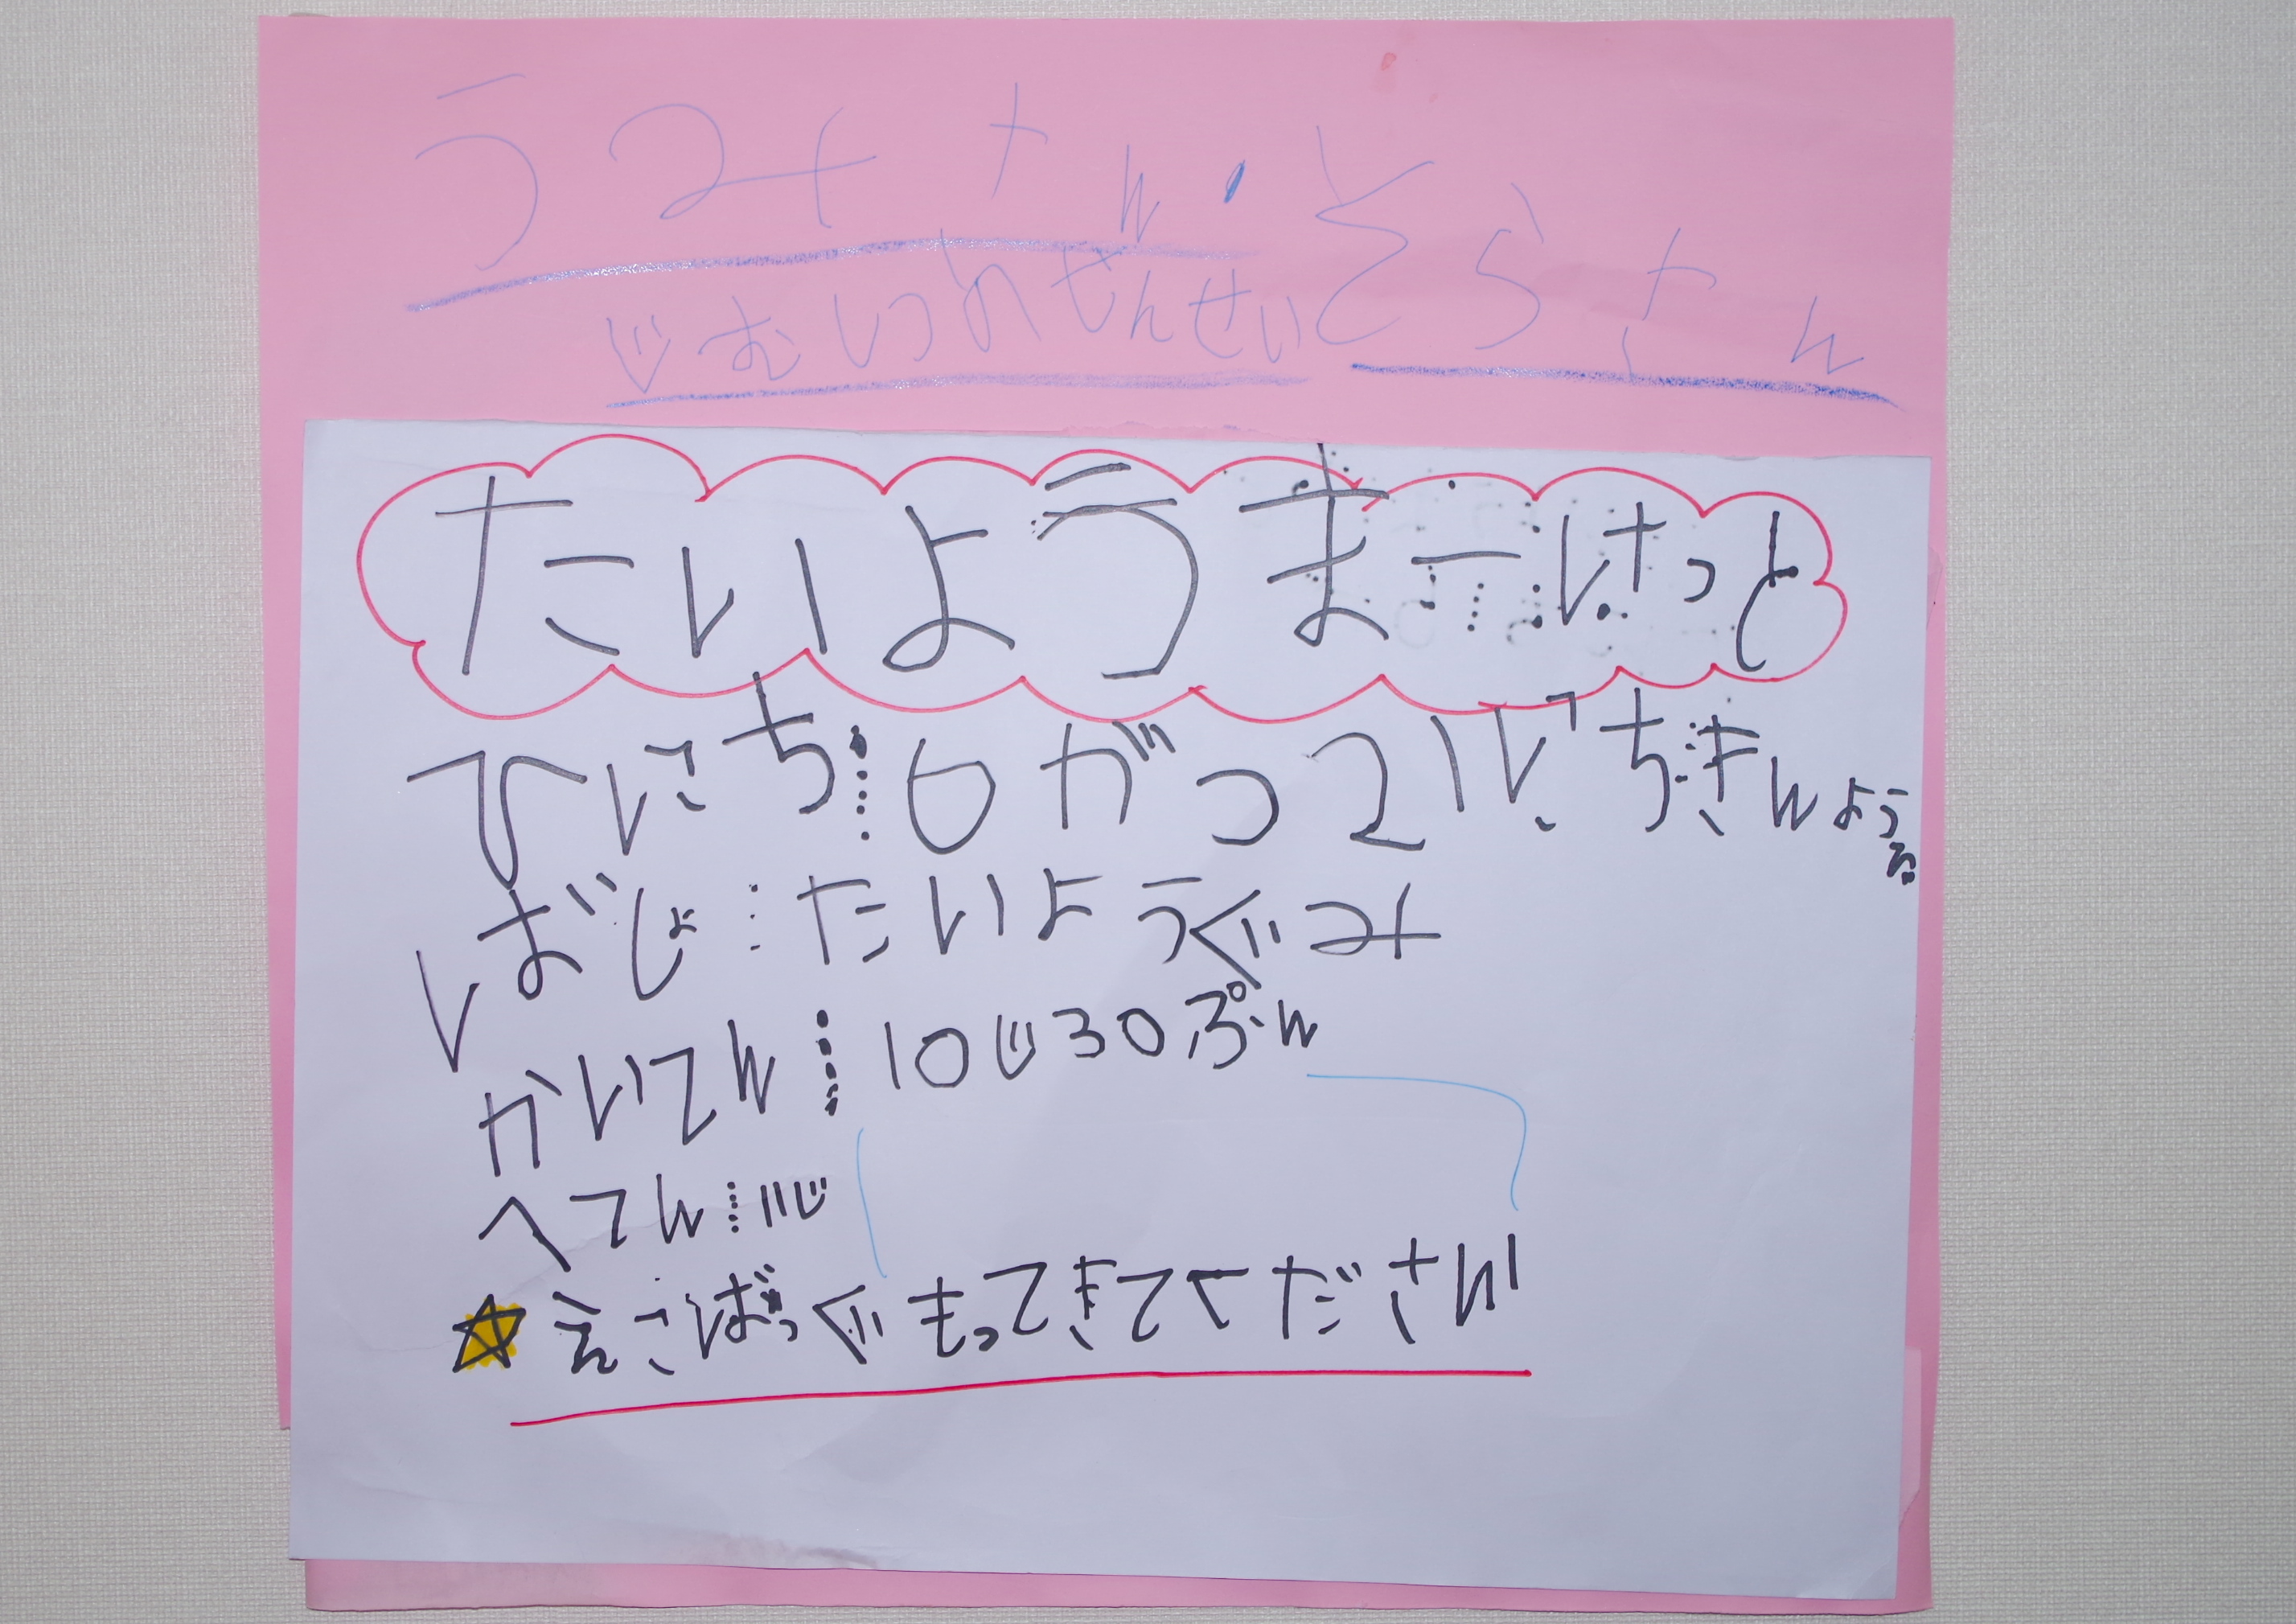 うみさん・そらさん
じむしつのせんせい
たいようまーけっと
ひにち…6がつ21にち…きんよう
ばしょ…たいようぐみ
かいてん…10じ30ぷん
へてん…11じ
☆えこばっぐもってきてください